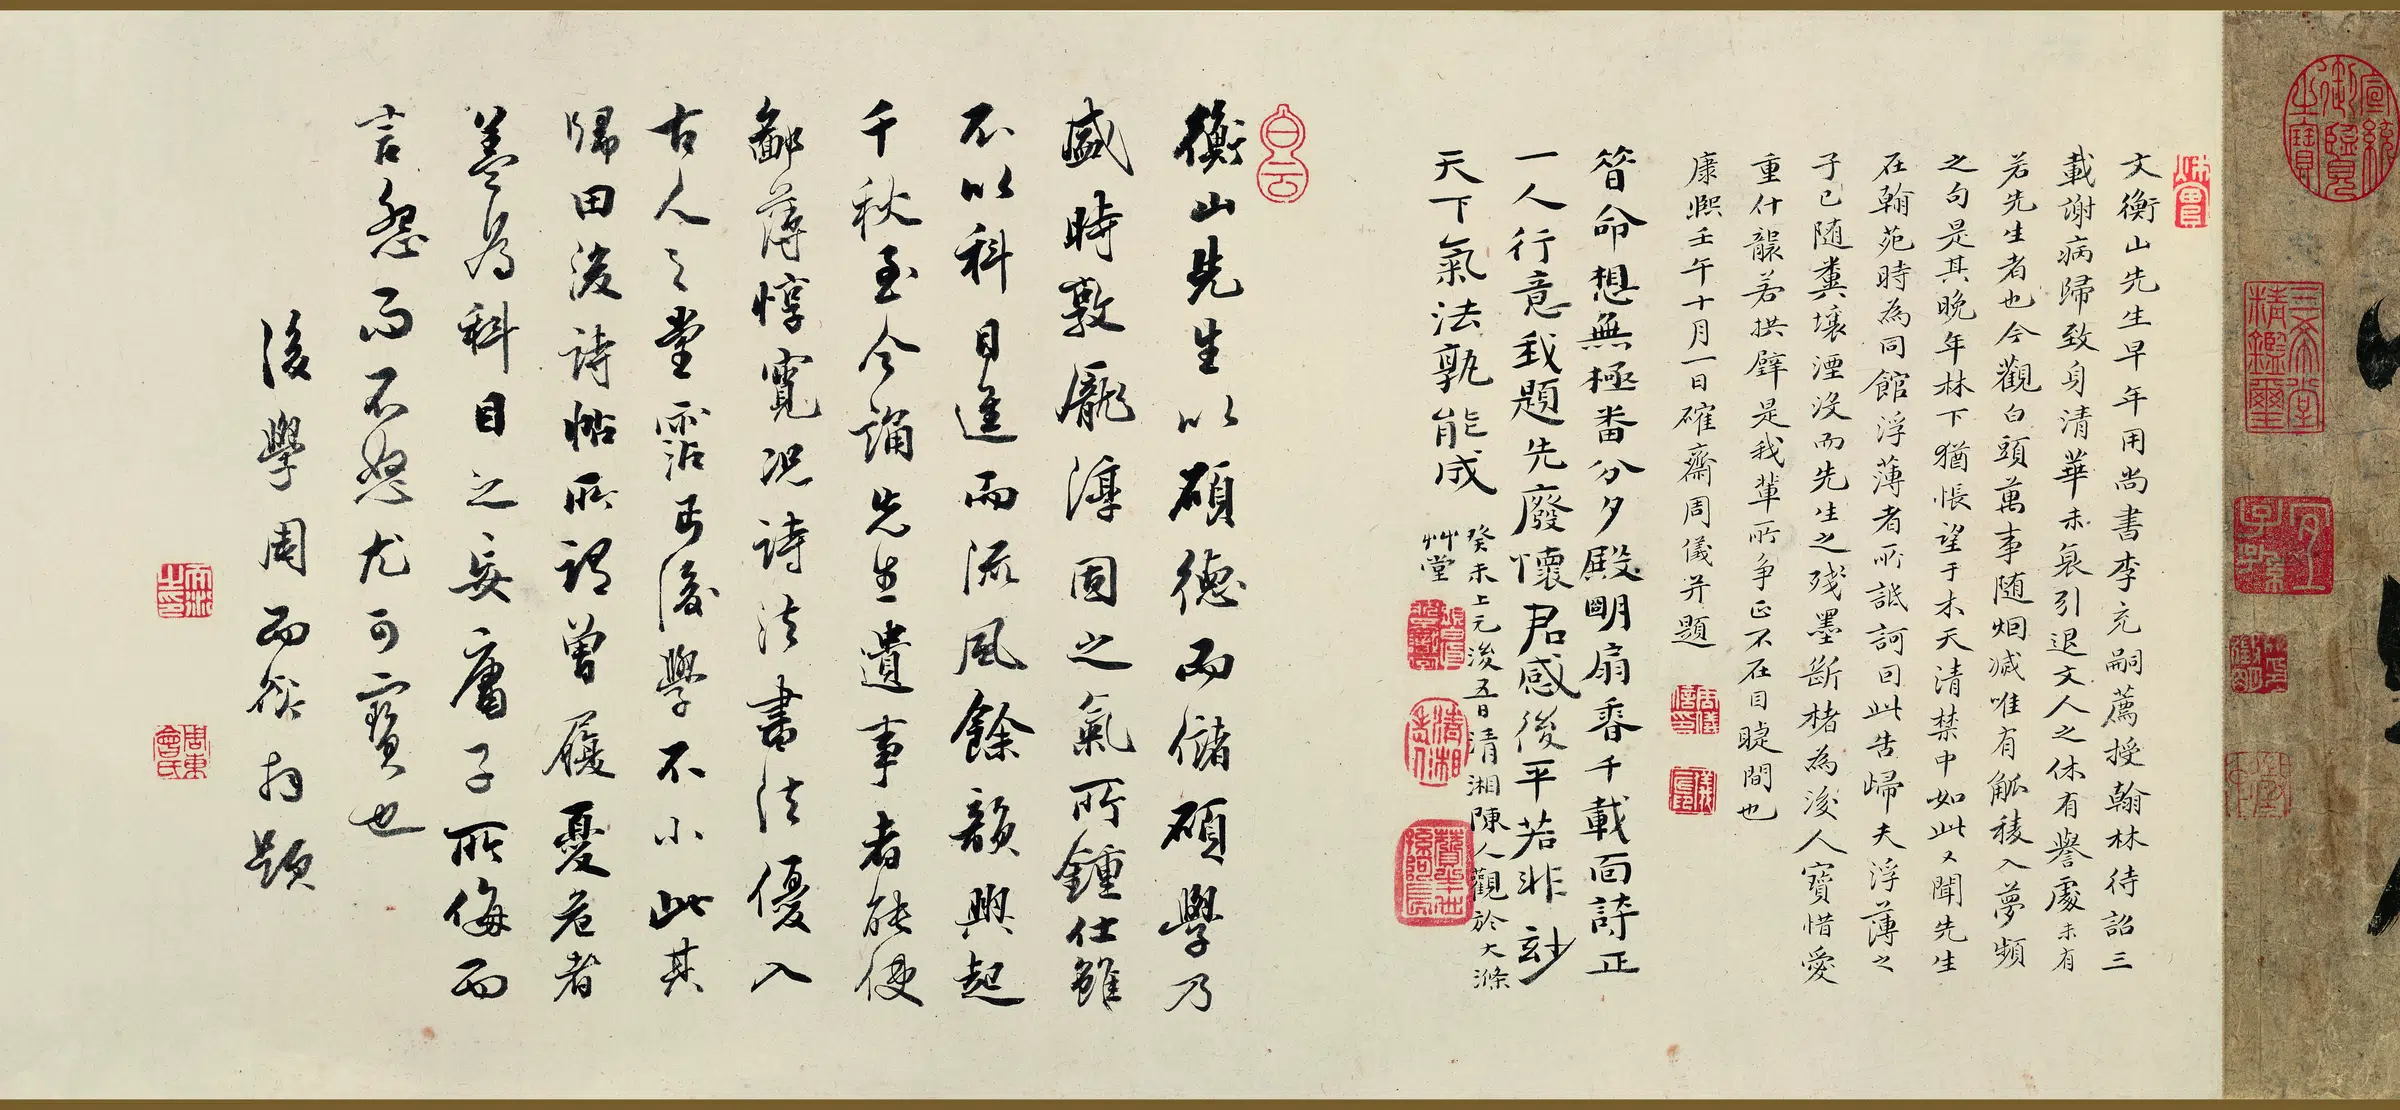 文衡山先生早年用尚書李充嗣薦授翰林待詔三
載謝病歸致身清華未衰引退文人之休有譽處未有
若先生者也今觀白頭萬事随烟滅唯有觚稜入夢頻
之句是其晚年林下猶悵望于木天清禁中如此又聞先生
在翰苑時為同館浮薄者所詆訶回此告歸夫浮薄之
子已随糞壤湮没而先生之殘墨斷楮為後人寶惜愛
重什襲若拱璧是我輩所争正不在目睫間也
康熙壬午十月一日確齋周儀并題
簪命想無極番分夕殿明扇香千載面詩正
一人行意我題先廢懷君感後平若非玅
天下氣法孰能成
癸未上元後五日清湘陳人觀於大滌
艸堂
白云
衡山先生以碩德而儲碩學乃
盛時敦龐淳固之氣所鍾仕雖
不以科目進而流風餘韻興起
千秋至今誦先生遺事者能使
鄙薄惇寬況詩法書法優入
古人之堂霑丐後學不小此其
歸田後詩帖所謂曾履憂危者
蓋為科目之妄庸子所侮而
言怨而不怒尤可寶也
後學周而衍拜題
宣統御覽之寶
三希堂精鑑璽
宜子孫